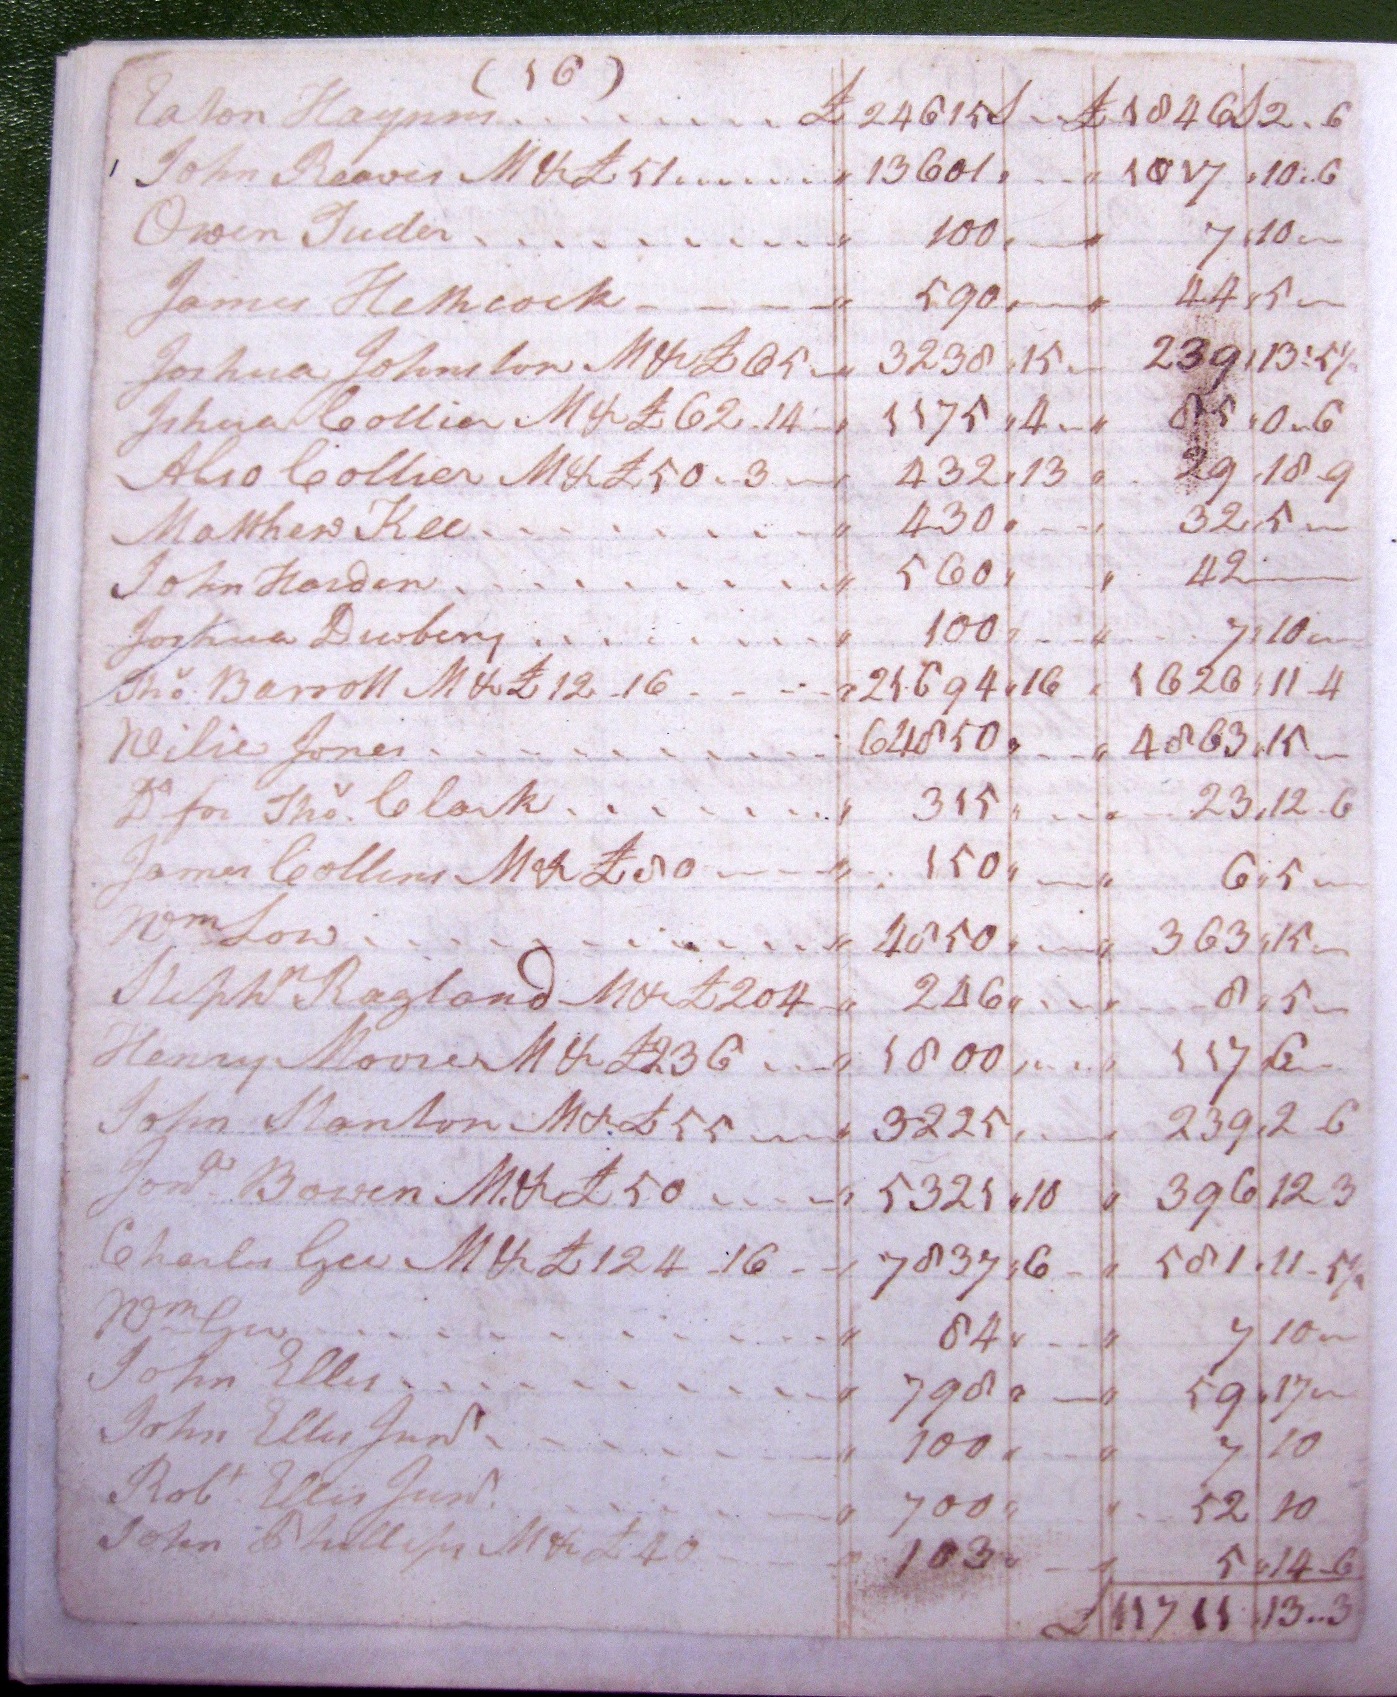 (16)
Eaton Haynes £ 24615 £ 1846 £ 2..6
John Reaves M & £ 51 " 13601 " 1017 " 10..6
Owen Tuder " 100 " 7 " 10
James Hethcock " 590 " 44 " 5
Joshua Johnston M & £ 65 " 3238 " 15 239 " 13 " 5 1/4
Jshua Collier M & £ 62.14 " 1175 " 4 " 85 " 0..6
Also Collier M & £ 50..3 " 432 " 13 " 29 " 18 9
Matthew Kee " 430 " 32 " 5
John Harden " 560 " 42
Joshua Dewberry " 100 " 7 " 10
Tho.s Barrott M & £ 12-16 " 21694 " 16 " 1626 " 11-4
Wilie Jones 64850 " 4863 " 15
Do for Tho.s Clark " 315 " 23 " 12-6
James Collins M & £ 80 " 150 " 6 " 5
Wm Low " 4850 " 363 " 15
Stephn Ragland M & £ 204 " 246 " 8 " 5
Henry Moore M & £ 236 " 1800 " 117 6
John Stanton M & £ 55 " 3225 " 239 " 2 6
Jona Bowen M. & £ 50 " 5321 " 10 " 396 " 12 3
Charles Gee M & £ 124-16 " 7837 " 6 " 581 " 11-5 1/4
Wm Gee " 84 " 7 10
John Ellis " 798 " 59 " 17
John Ellis Junr " 100 " 7 10
Robt Ellis Junr. " 700 " 52 10
John Phillips M & £ 40 " 103 " 5 " 14-6
£ 11711 " 13..3